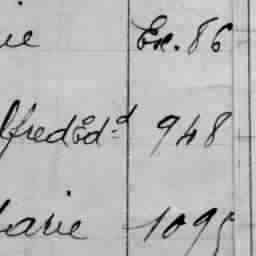 ie Ex. 86
lfred Ed.d 948
arie 1095